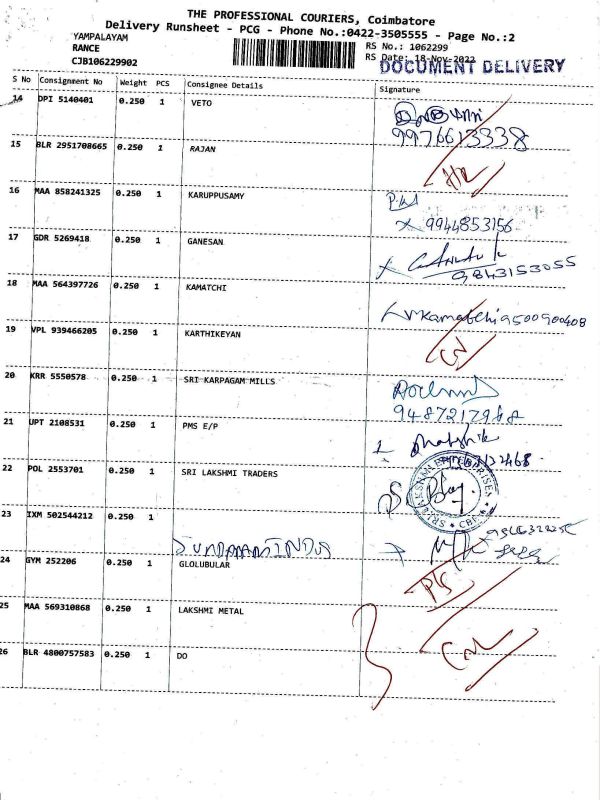 THE PROFESSIONAL COURIERS, Coimbatore
Delivery Runsheet - PCG - Phone No.:0422-3505555 - Page No.:2
YAMPALAYAM
RANCE
CJB106229902
RS No.: 1062299
RS Date: 18-Nov-2022
DOCUMENT DELIVERY
S No Consignment No Weight PCS Consignee Details Signature
14 DPI 5140401 0.250 1 VETO
9976613338
15 BLR 2951708665 0.250 1 RAJAN
16 MAA 858241325 0.250 1 KARUPPUSAMY
9944853156
17 GDR 5269418 0.250 1 GANESAN
9843153055
18 MAA 564397726 0.250 1 KAMATCHI
V Kamatchi 9500900408
19 VPL 939466205 0.250 1 KARTHIKEYAN
20 KRR 5550578 0.250 1 SRI KARPAGAM MILLS
21 UPT 2108531 0.250 1 PMS E/P
22 POL 2553701 0.250 1 SRI LAKSHMI TRADERS
23 IXM 502544212 0.250 1
24 GYM 252206 0.250 1 GLOLUBULAR
25 MAA 569310868 0.250 1 LAKSHMI METAL
26 BLR 4800757583 0.250 1 DO